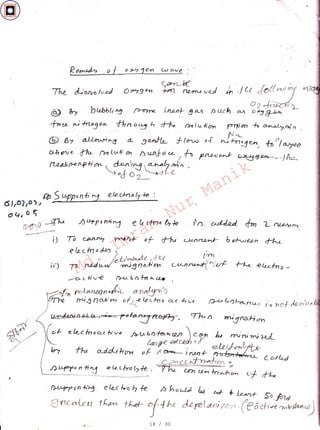 Remedy of oxygen wave :
can be
The dissolved Oxygen removed in following ways
O2 free N2
① By bubbling some inert gas such as oxygen
free nitrogen through the solution prior to analysis.
N2
② By allowing a gentle flow of nitrogen to layer
above the solution surface, to prevent oxygen
reabsorption during analysis.
of O2
Supporting electrolyte :
01, 02, 03,
04, 05
The supporting electrolyte is added for 2 reasons.
i) To carry most of the current between the
electrodes
eliminate the
ii) To reduce migration current of the electro-
active substance
In polarographic analysis
The migration of electro active substance is not desired
Thus migration
of electroactive substances can be minimized
large excess of
by the addition of inert electrolyte called
concentration
supporting electrolyte. The concentration of the
supporting electrolyte should be at least 50 fold
greater than that of the depolarizer. (Electroactive substance)
Md. Imran Nur Manik
18 / 30